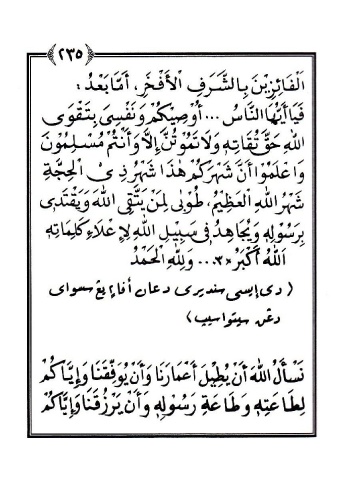 ﴿٢٣٥﴾
الْفَائِزِيْنَ بِالشَّرَفِ الْأَفْخَرِ، أَمَّا بَعْدُ:
فَيَا أَيُّهَا النَّاسُ ... أُوْصِيْكُمْ وَنَفْسِىْ بِتَقْوَى
اللهِ حَقَّ تُقَاتِهٖ وَلَا تَمُوْتُنَّ إِلَّا وَأَنْتُمْ مُسْلِمُوْنَ
وَاعْلَمُوْا أَنَّ شَهْرَكُمْ هٰذَا شَهْرُ ذِى الْحِجَّةِ
شَهْرُ اللهِ الْعَظِيْمُ، طُوْبٰى لِمَنْ يَتَّقِى اللهَ وَيَقْتَدِىْ
بِرَسُوْلِهٖ وَيُجَاهِدُ فِىْ سَبِيْلِ اللهِ لِإِعْلَاءِ كَلِمَاتِهٖ
اَللهُ أَكْبَرُ ×٣... وَلِلّٰهِ الْحَمْدُ
( دى إيسى سنديرى دعان أفا يڠ سسواى
دڠن سيتواسيب )
نَسْأَلُ اللهَ أَنْ يُطِيْلَ أَعْمَارَنَا وَأَنْ يُوَفِّقَنَا وَإِيَّاكُمْ
لِطَاعَتِهٖ وَطَاعَةِ رَسُوْلِهٖ وَأَنْ يَرْزُقَنَا وَإِيَّاكُمْ